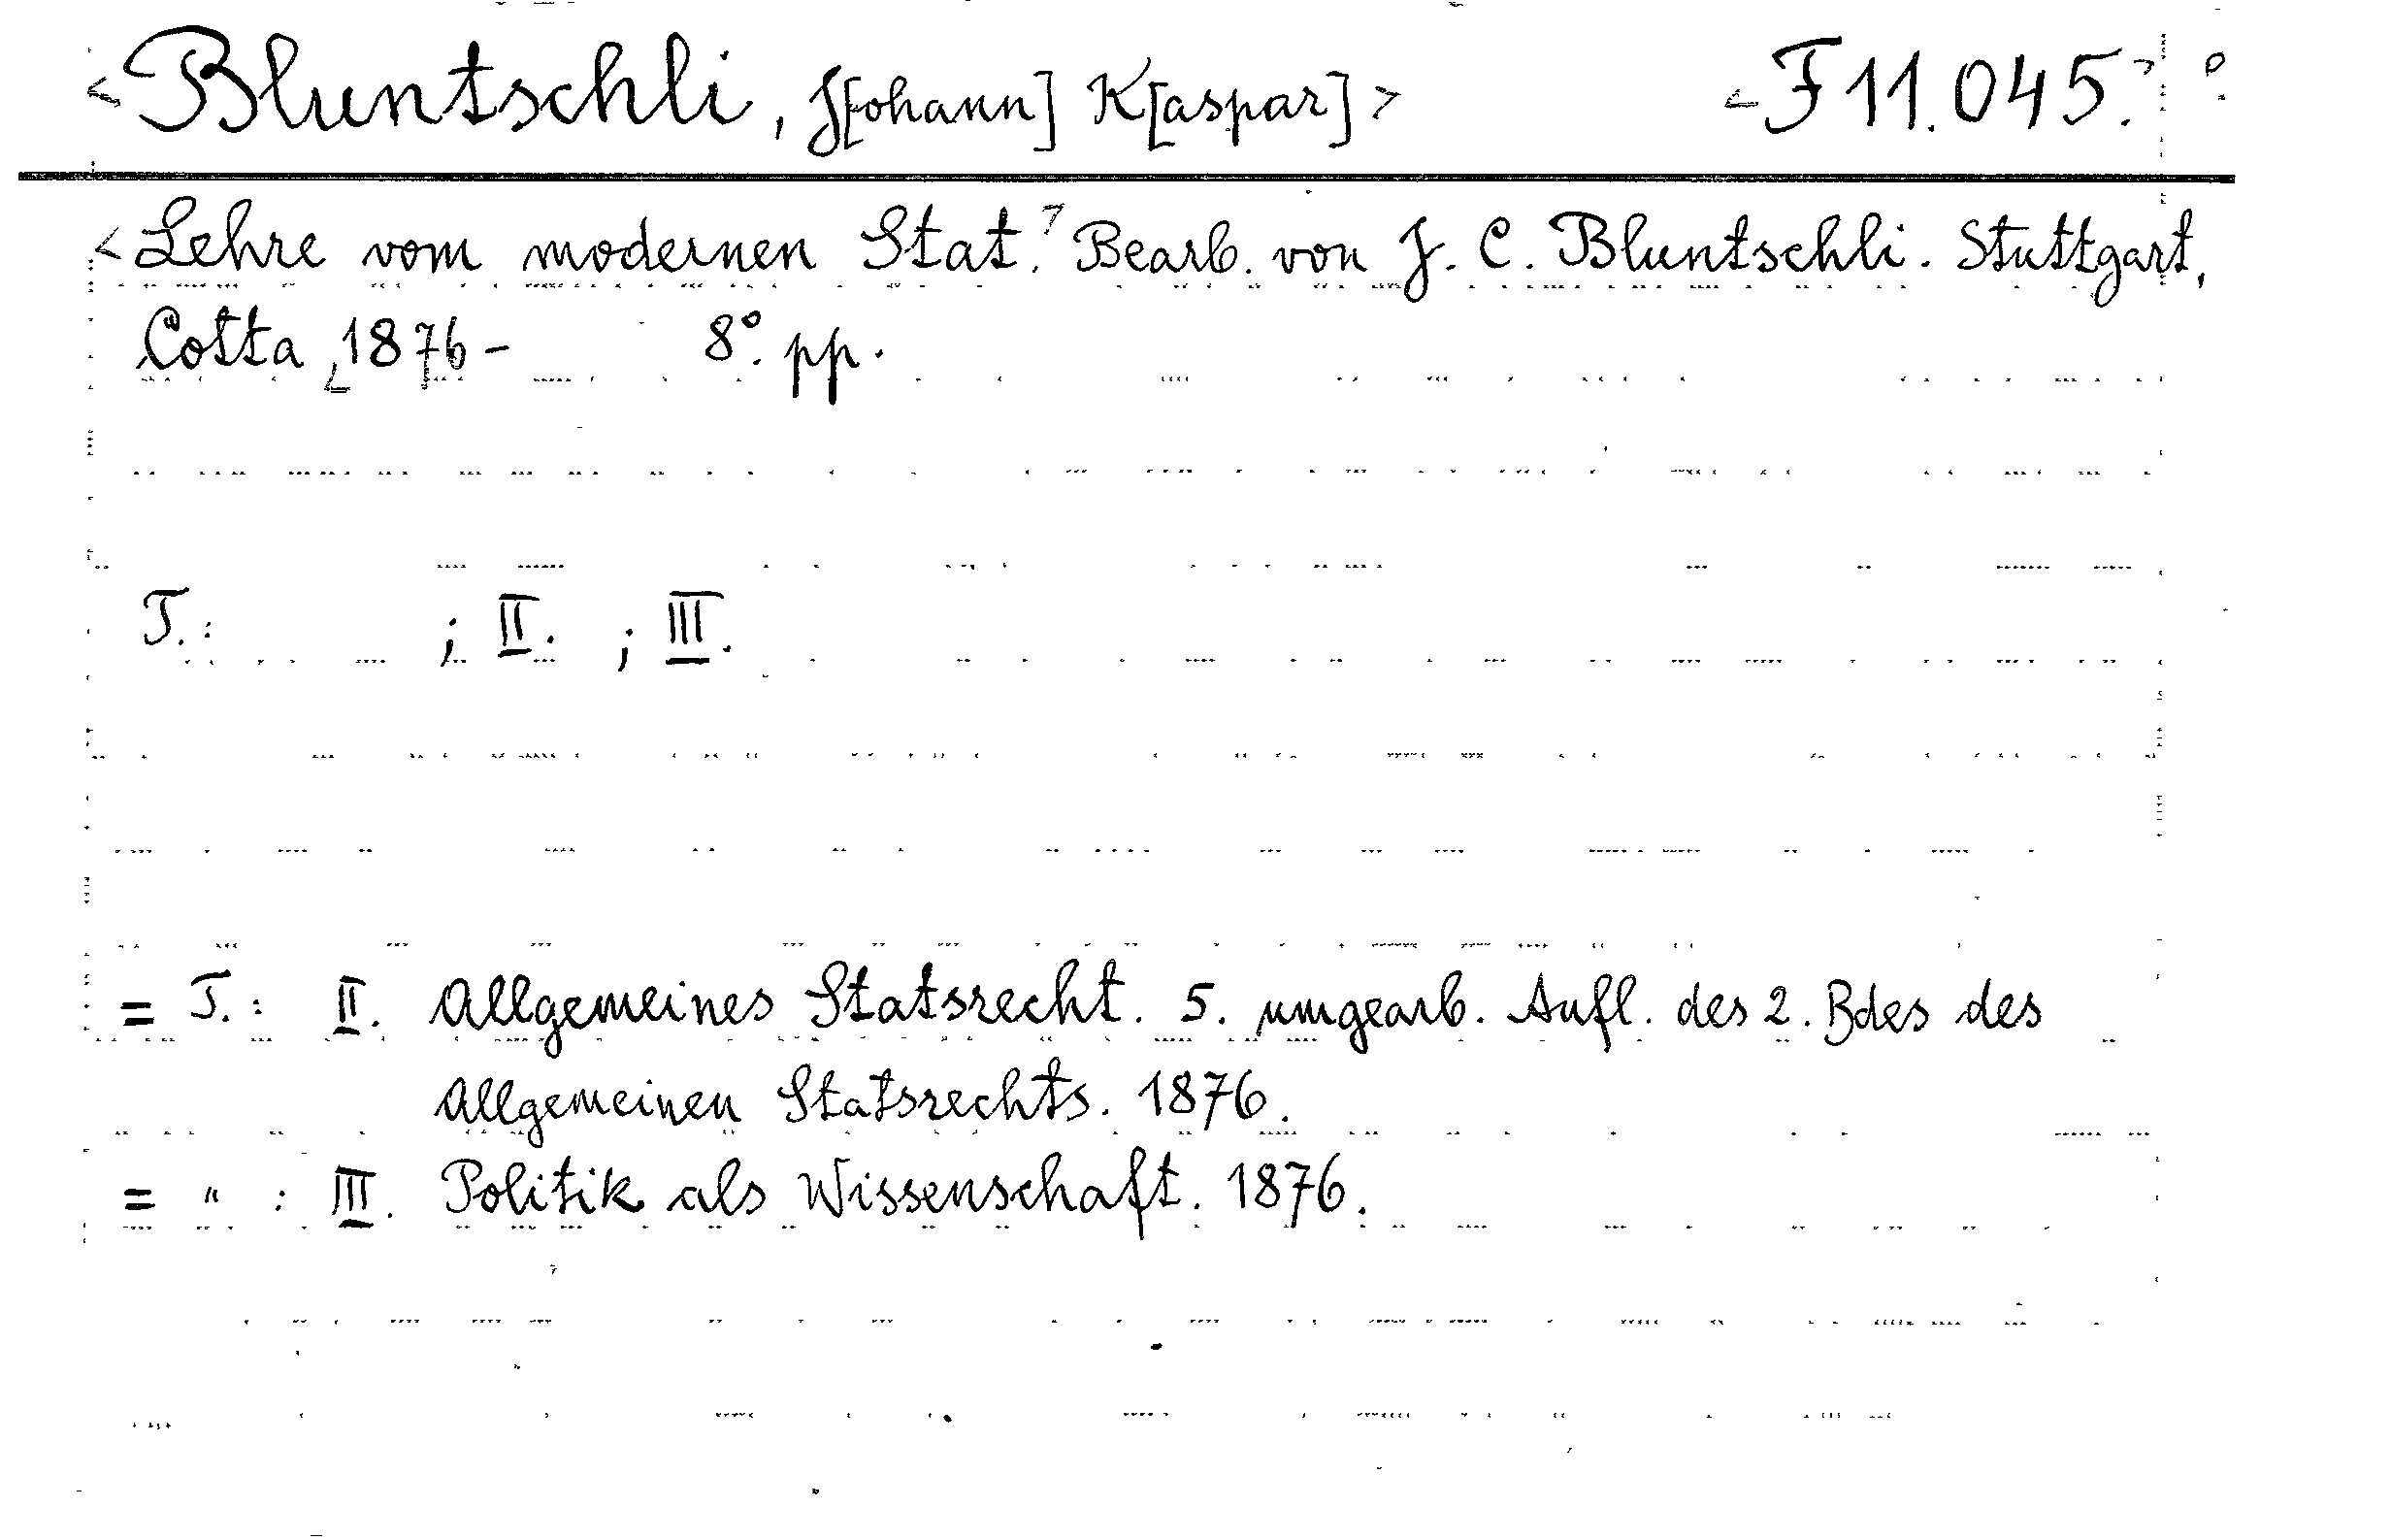 <Bluntschli, J[ohann] K[aspar]> <F 11.045.>
<Lehre vom modernen Stat.> Bearb. von J. C. Bluntschli. Stuttgart,
Cotta, 1876- 8°. pp.
T.: ; II. ; III.
= T.: II. Allgemeines Statsrecht. 5. umgearb. Aufl. des 2. Bdes des
Allgemeinen Statsrechts. 1876.
= " : III. Politik als Wissenschaft. 1876.